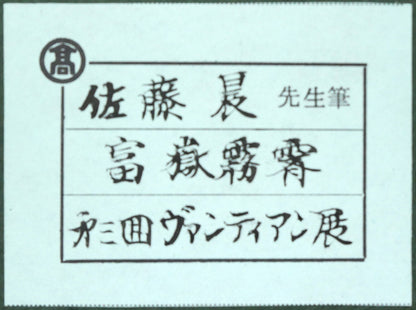 髙
佐藤 晨 先生筆
富嶽霧霽
第三回ヴァンティアン展